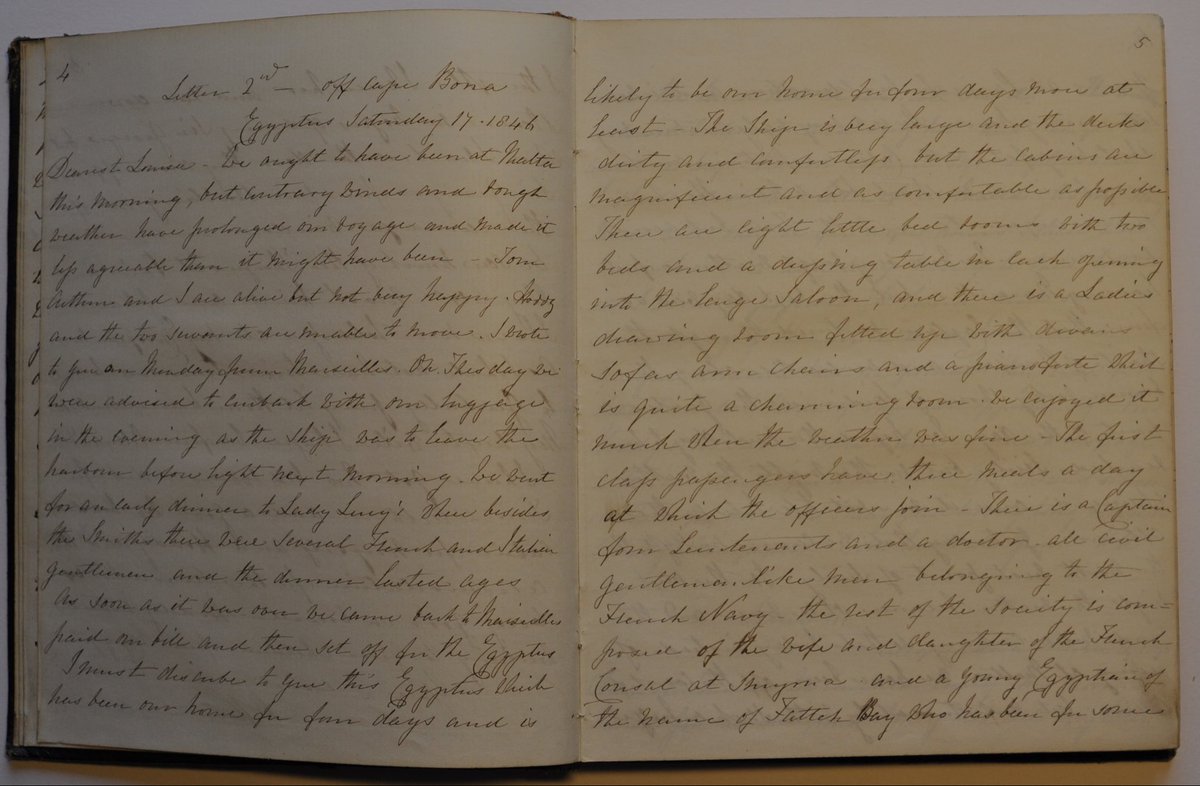 4
Letter 2nd — off Cape Bona
Egyptus Saturday 17 - 1846
Dearest Louisa - We ought to have been at Malta
this morning, but contrary winds and rough
weather have prolonged our voyage and made it
less agreeable than it might have been - Tom
Arthur and I are alive but not very happy.
and the two servants are unable to move. I wrote
to you on Monday from Marseilles. On Tuesday we
were advised to embark with our luggage
in the evening as the ship was to leave the
harbour before light next morning. We went
for an early dinner to Lady Lucy's where besides
the Smiths there were several French and Italian
gentlemen and the dinner lasted ages
As soon as it was over we came back to Marseilles
paid our bill and then set off for the Egyptus
I must describe to you this Egyptus which
has been our home for four days and is
5
likely to be our home for four days more at
least - The Ship is very large and the decks
dirty and comfortless but the cabins are
magnificent and as comfortable as possible
There are eight little bed rooms with two
beds and a dressing table in each opening
into the large Saloon, and there is a Ladies
drawing room fitted up with divans
sofas arm chairs and a pianoforte which
is quite a charming room. We enjoyed it
much when the weather was fine - The first
class passengers have three meals a day
at which the officers join - There is a Captain
four Lieutenants and a doctor all civil
gentlemanlike men belonging to the
French Navy - the rest of the society is com=
posed of the wife and daughter of the French
Consul at Smyrna and a young Egyptian of
the name of Fatteh Bay who has been for some